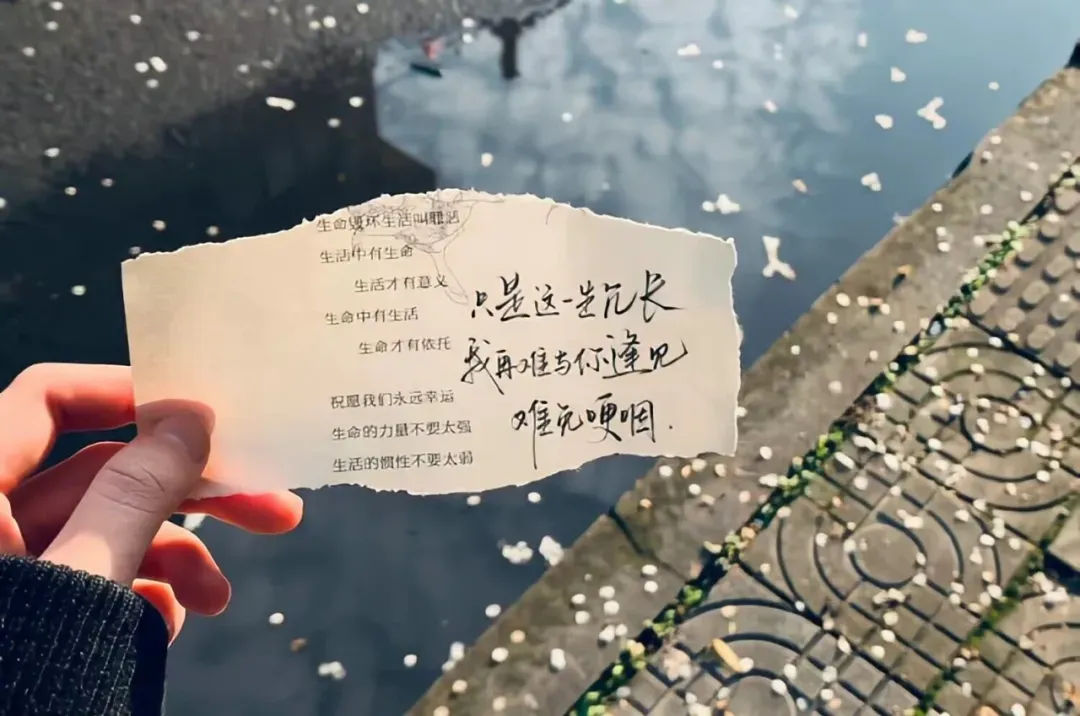 生命毁坏生活叫匪活
生活中有生命
生活才有意义
生命中有生活
生命才有依托
祝愿我们永远幸运
生命的力量不要太强
生活的惯性不要太弱
只是这一生冗长
我再难与你逢见
难免哽咽.